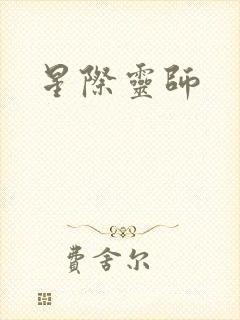 星際靈師
費舍尔